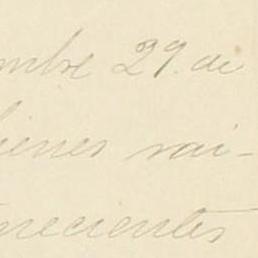 mbre 29. de
bienes rai-
necientes